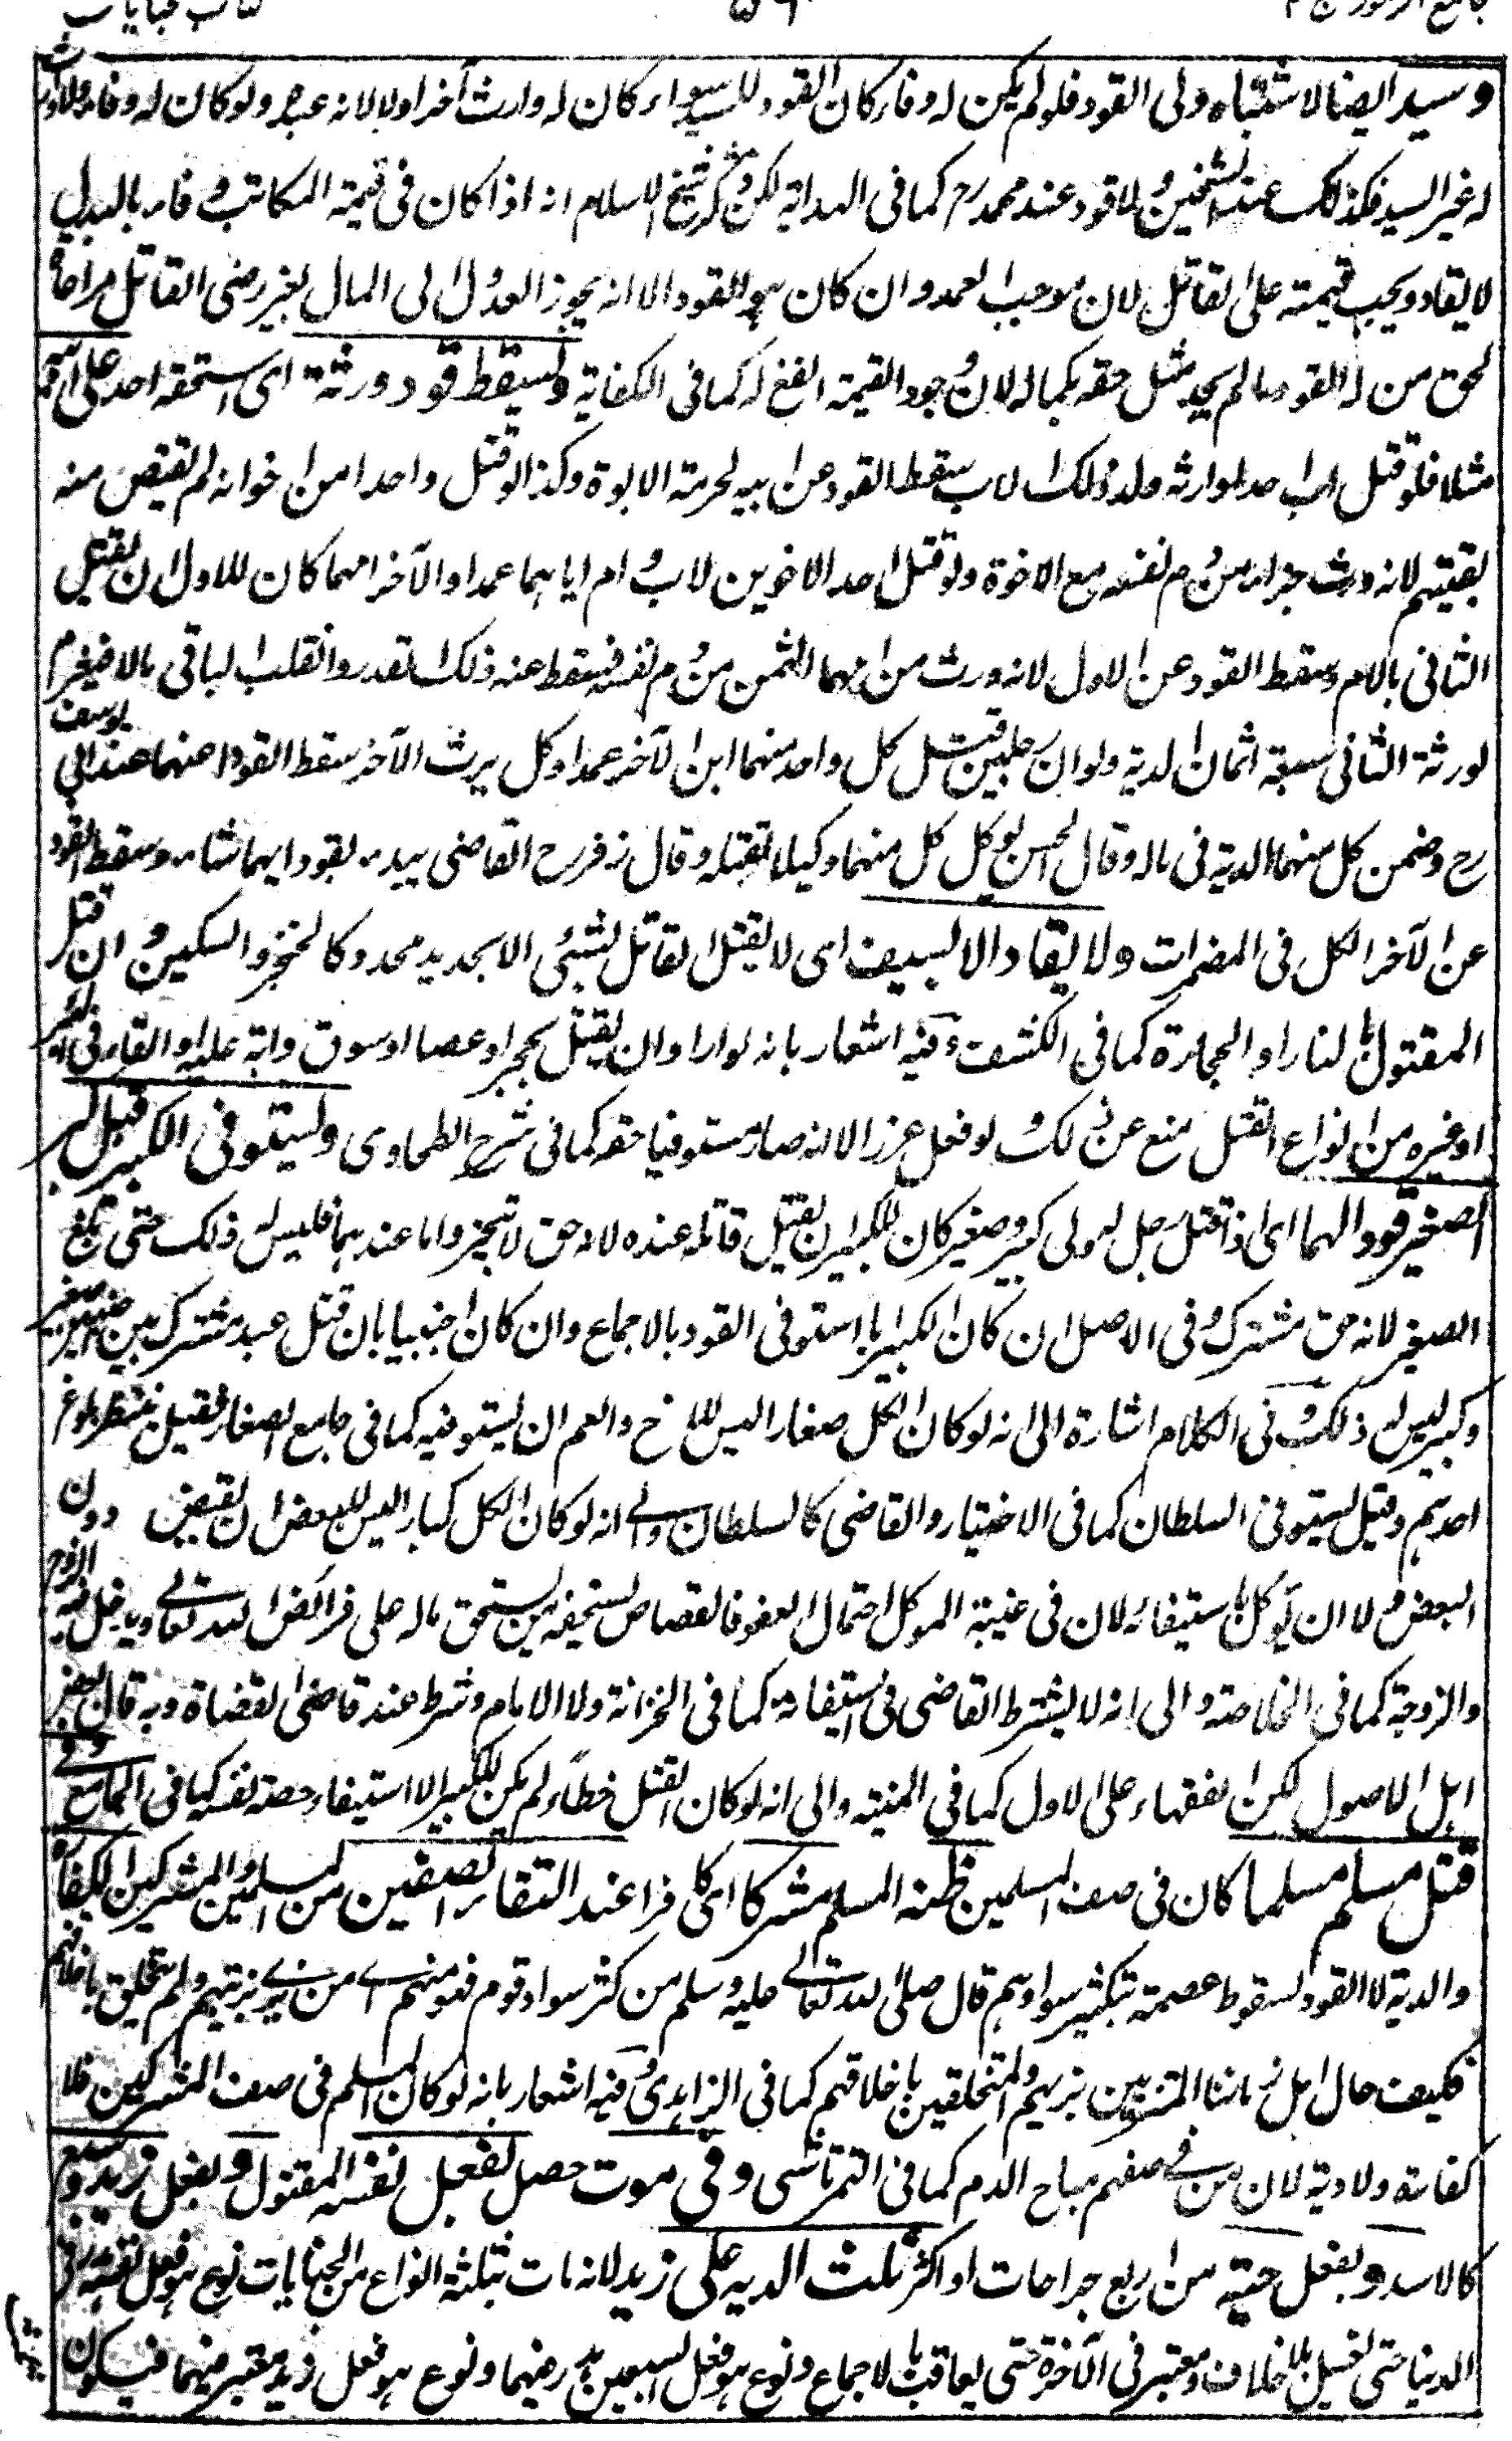 وسيد ايضا لاشتباه ولى القود فلو لم يكن له وفاء كان القود للسيد سواء كان له وارث آخر اولا لانه عبده ولو كان له وفاء ولا وارث
له غير السيد فكذلك عند الشيخين ولا قود عند محمد رح كما فى الهداية لكن ذكر شيخ الاسلام انه اذا كان فى قيمة المكاتب وفاء بالبدل
لا يقاد ويجب قيمته على القاتل لان موجب العمد وان كان هو القود الا انه يجوز العدول الى المال بغير رضى القاتل مراعاة
لحق من له القود مالم يجد مثل حقه بكماله لان وجود القيمة انفع له كما فى الكفاية ويسقط قود ورثه اى استحقه احد على ابيه
مثلا فلو قتل اب احدا وارثه ولد ذلك الاب سقط القود عن ابيه لحرمة الابوة وكذا لو قتل واحدا من اخوانه لم يقتص منه
بقيتهم لانه ورث جزاء من دم نفسه مع الاخوة ولو قتل احد الاخوين لاب وام اباهما عمدا والآخر امهما كان للاول ان يقتل
الثانى بالام وسقط القود عن الاول لانه ورث من امهما الثمن من دم نفسه فسقط عنه ذلك القدر وانقلب الباقى مالا فيغرم
لورثة الثانى سبعة اثمان الدية ولو ان رجلين قتل كل واحد منهما ابن الآخر عمدا وكل يرث الآخر سقط القود عنهما عند ابى يوسف
رح وضمن كل منهما الدية فى ماله وقال الحسن يوكل كل منهما وكيلا بقتله وقال زفر رح القاضى يبدء بقود ايهما شاء وسقط القود
عن الآخر الكل فى المضمرات ولا يقاد الا بالسيف اى لا يقتل القاتل بشئ الا بحديد محدد كالخنجر والسكين وان قتل
المقتول بالنار او الحجارة كما فى الكشف وفيه اشعار بانه لو اراد ان يقتل بحجر او عصا او سوق دابة عليه او القاء فى البئر
او غيره من انواع القتل منع عن ذلك ولو فعل عزر الا انه صار مستوفيا حقه كما فى شرح الطحاوى ويستوفى الكبير قبل كبر
الصغير قودا لهما اى اذا قتل رجل له ولى كبير وصغير كان للكبير ان يقتل قاتله عنده لانه حق لا يتجزى واما عندهما فليس له ذلك حتى يبلغ
الصغير لانه حق مشترك وفى الاصل ان كان الكبير ابا استوفى القود بالاجماع وان كان اجنبيا بان قتل عبد مشترك بين اجنبيين صغير
وكبير ليس له ذلك وفى الكلام اشارة الى انه لو كان الكل صغارا ليس للاخ والعم ان يستوفيه كما فى جامع الصغار فقيل ينتظر بلوغ
احدهم وقيل يستوفى السلطان كما فى الاختيار والقاضى كالسلطان والى انه لو كان الكل كبارا ليس للبعض ان يقتص دون
البعض ولا ان يوكل باستيفائه لان فى غيبة الموكل احتمال العفو فالقصاص يستحقه من يستحق ماله على فرائض الله تعالى ويدخل فيه الزوج
والزوجة كما فى الخلاصة والى انه لا يشترط القاضى فى استيفائه كما فى الخزانة ولا الامام وشرط عند قاضى القضاة وبه قال بعض
اهل الاصول لكن الفقهاء على الاول كما فى المنية والى انه لو كان القتل خطأ لم يكن للكبير الا استيفاء حصة نفسه كما فى الجامع وفى
قتل مسلم مسلما كان فى صف المسلمين ظنه المسلم مشركا اى كافرا عند التقاء الصفين من المسلمين والمشركين الكفارة
والدية لا القود لسقوط عصمته بتكثير سوادهم قال صلى الله تعالى عليه وسلم من كثر سواد قوم فهو منهم اى من تزيى بزيهم ولم يتخلق باخلاقهم
فكيف حال اهل زماننا المتزيين بزيهم والمتخلقين باخلاقهم كما فى الزاهدى وفيه اشعار بانه لو كان المسلم فى صف المشركين فلا
كفارة ولا دية لان من فى صفهم مباح الدم كما فى التمرتاشى وفى موت حصل بفعل نفسه المقتول وبفعل زيد وسبع
كالاسد وبفعل حية من اربع جراحات او اكثر ثلث الدية على زيد لانه مات بثلثة انواع من الجنايات نوع هو فعل نفسه هدر فى
الدنيا حتى يغسل بلا خلاف ومعتبر فى الآخرة حتى يعاقب بالاجماع ونوع هو فعل السبعين هدر فيهما ونوع هو فعل زيد معتبر فيهما فيكون